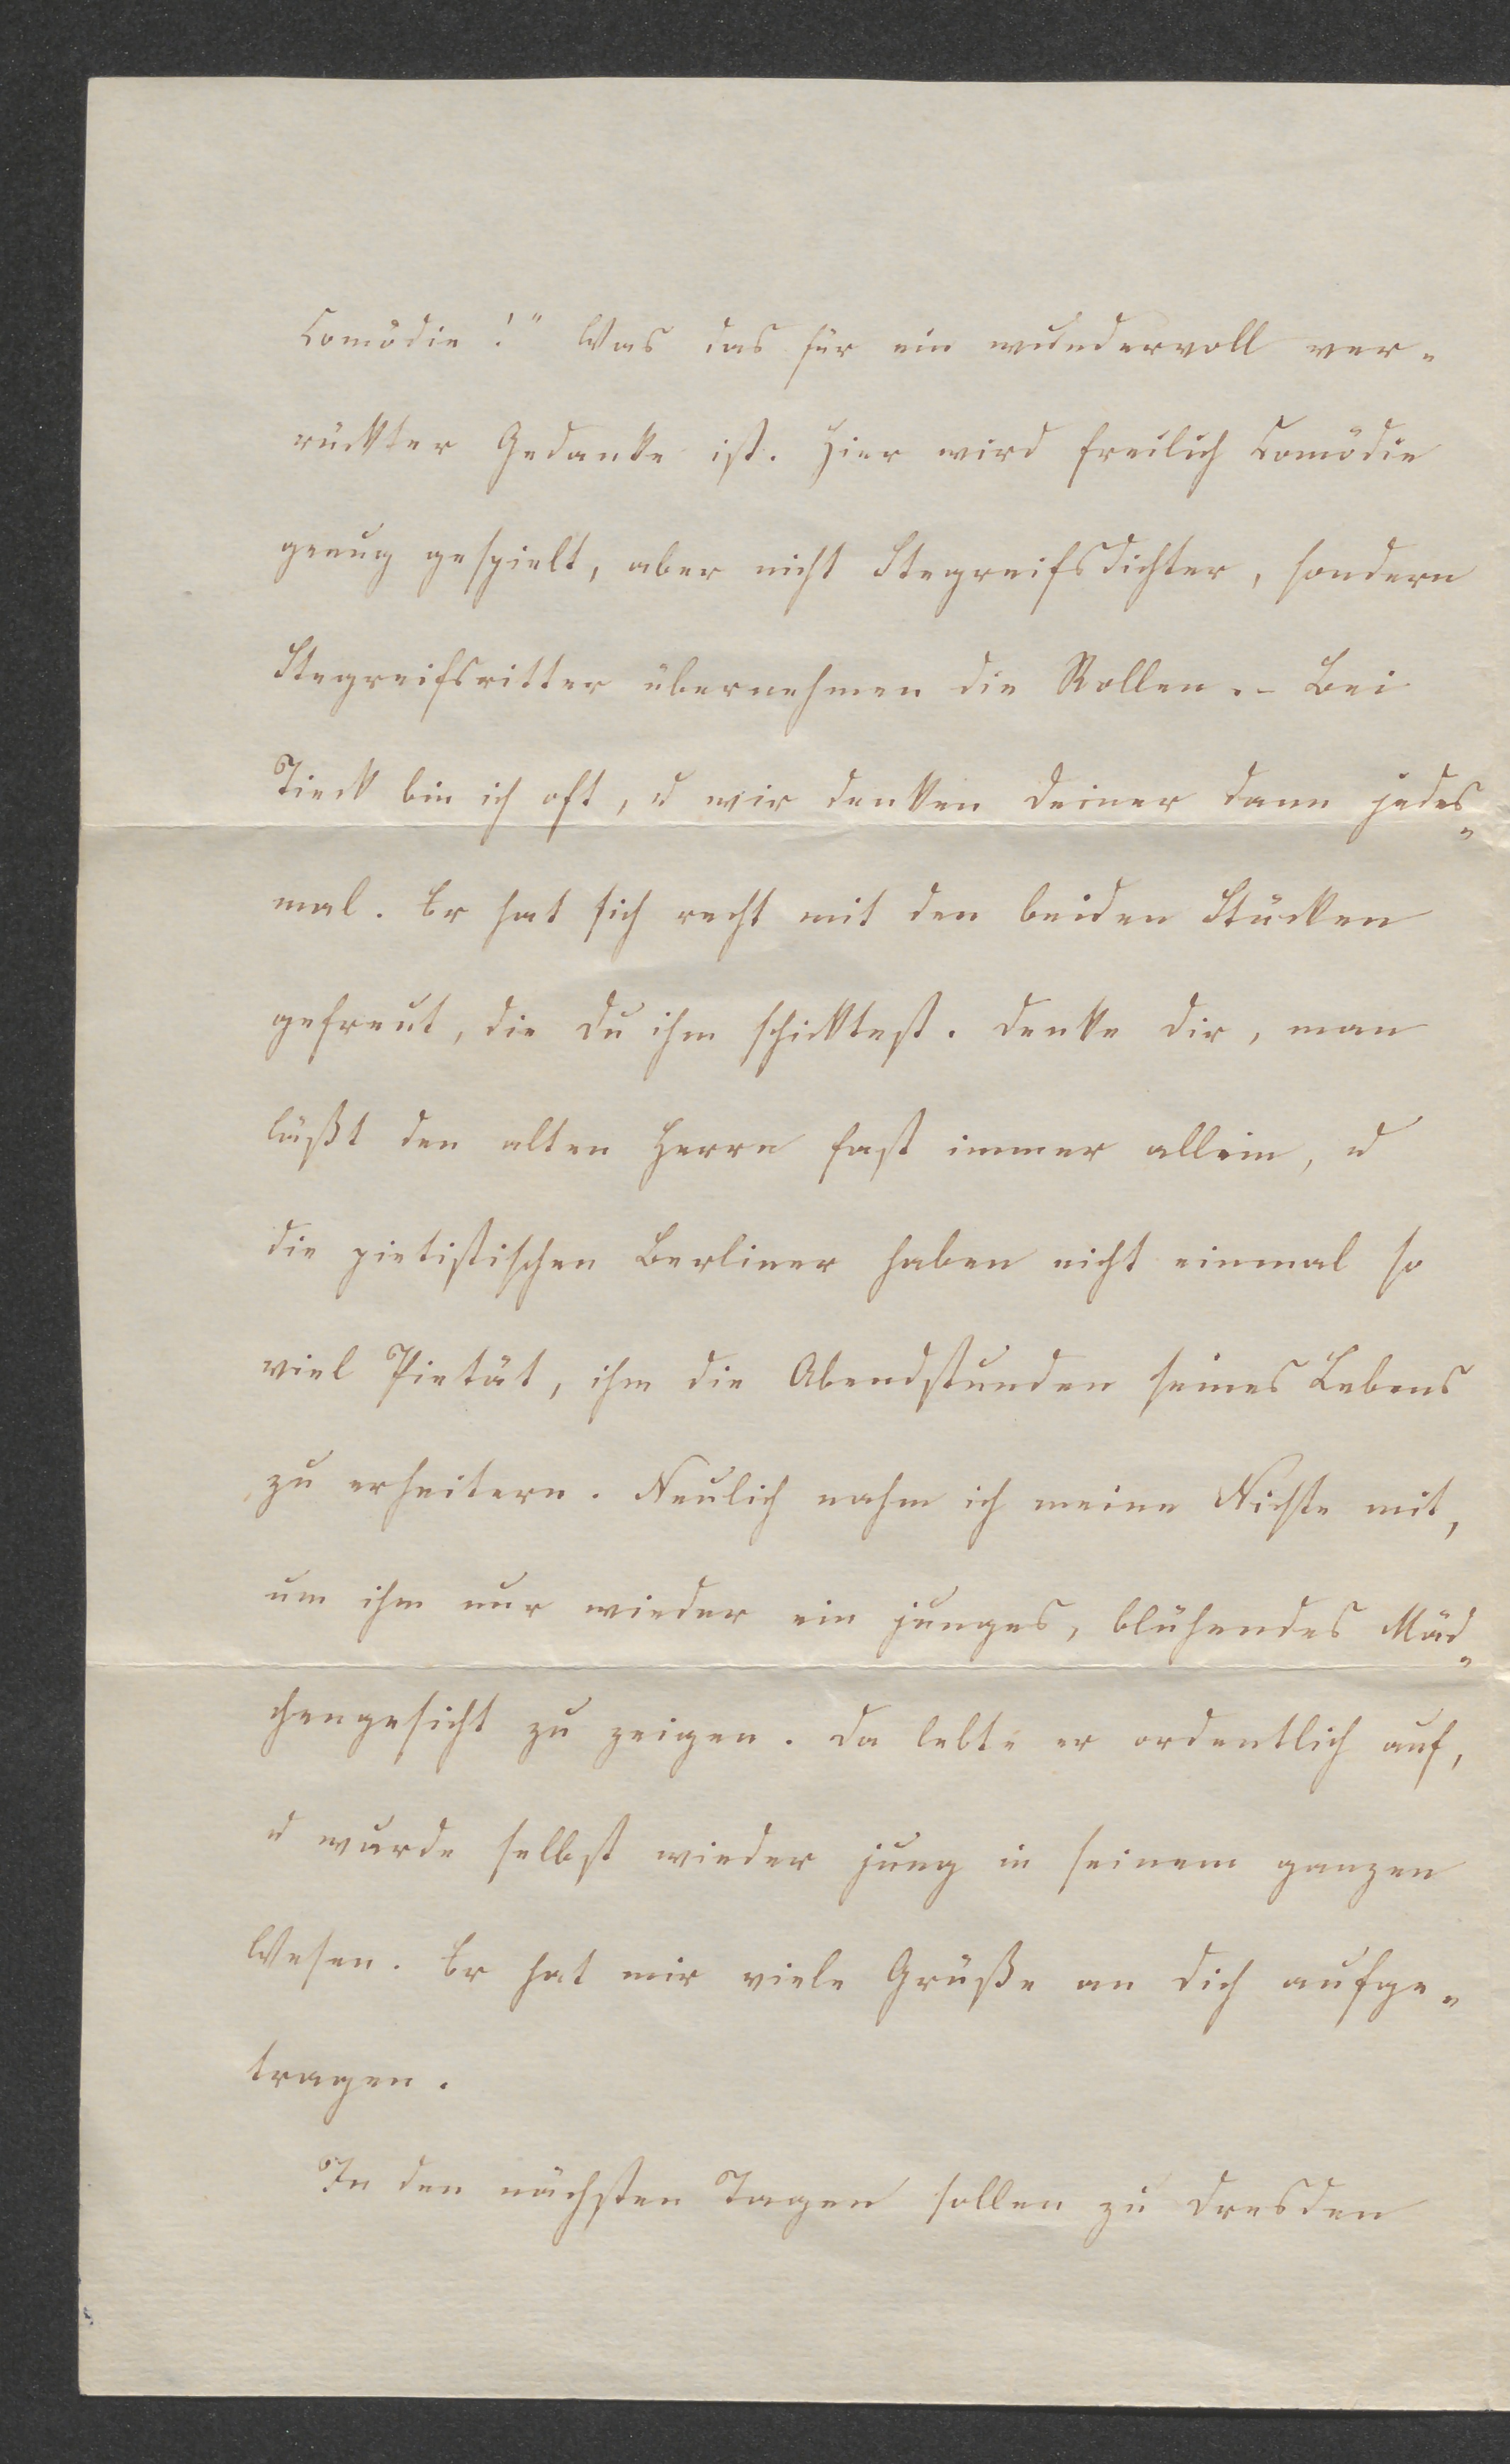 Comödie!" Was das für ein wundervoll ver-
rückter Gedanke ist. Hier wird freilich Comödie
genug gespielt, aber nicht Stegreifsdichter, sondern
Stegreifsritter übernehmen die Rollen. – Bei
Tieck bin ich oft, u wir denken Deiner dann jedes-
mal. Er hat sich recht mit den beiden Stücken
gefreut, die Du ihm schicktest. Denke Dir, man
läßt den alten Herrn fast immer allein, u
die pietistischen Berliner haben nicht einmal so
viel Pietät, ihm die Abendstunden seines Lebens
zu erheitern. Neulich nahm ich meine Nichte mit,
um ihm nur wieder ein junges, blühendes Mäd-
chengesicht zu zeigen. Da lebte er ordentlich auf,
u wurde selbst wieder jung in seinem ganzen
Wesen. Er hat mir viele Grüße an Dich aufge-
tragen.
In den nächsten Tagen sollen zu Dresden